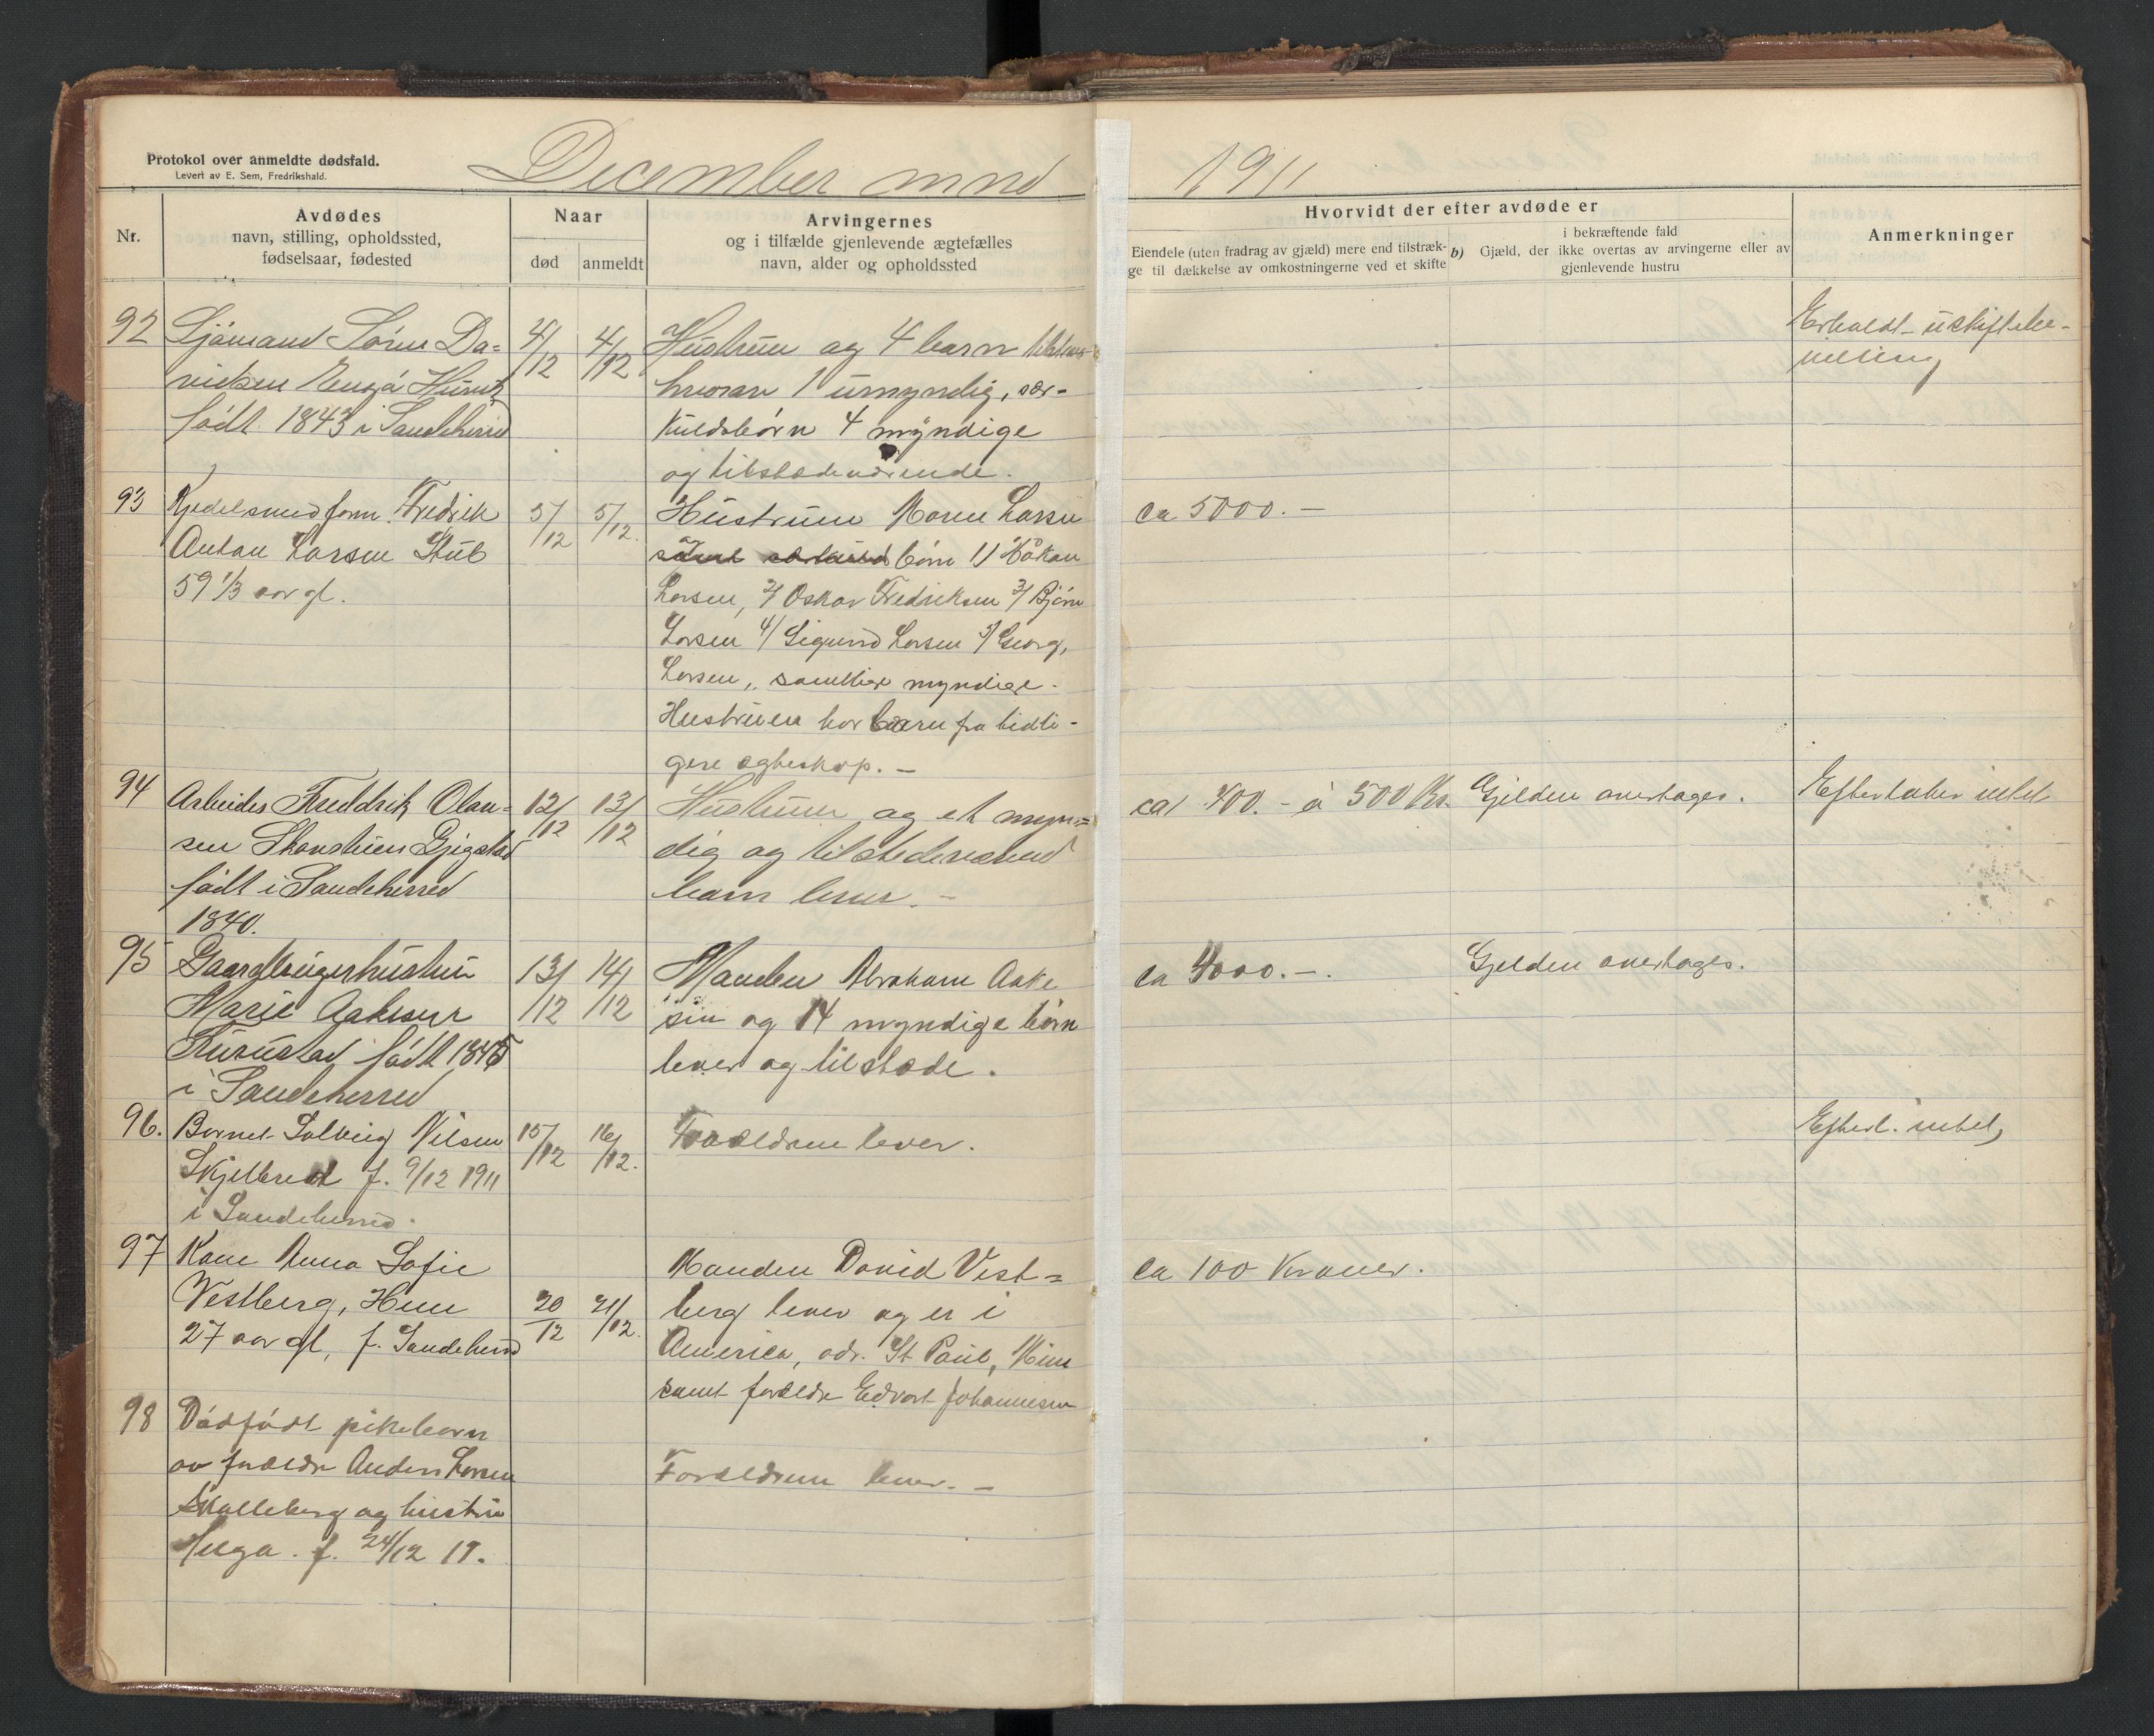 Protokol over anmeldte dødsfald.
Levert av E. Sem, Fredrikshald.
December mnd 1911
Nr.
Avdødes
navn, stilling, opholdssted,
fødselsaar, fødested
Naar
død
anmeldt
Arvingernes
og i tilfælde gjenlevende ægtefælles
navn, alder og opholdssted
Hvorvidt der efter avdøde er
Eiendele (uten fradrag av gjæld) mere end tilstræk-
ge til dækkelse av omkostningerne ved et skifte
i bekræftende fald
b) Gjæld, der ikke overtas av arvingerne eller av
gjenlevende hustru
Anmerkninger
92
Sjömand Sören Da-
vidsen
födt 1843 i Sandeherred
4/12
4/12
Hustruen og 4 barn
hvorav 1 umyndig, sær-
kuldsbörn 4 myndige
og tilstedeværende.
Erholdt uskiftebe-
villing
93
Kjedelsmed form. Fredrik
Anton Larsen Stub
59 1/3 aar gl.
5/12
5/12.
Hustruen Maren Larsen
samt særkuld börn 1/ Håkan
Larsen, 2/ Oskar Fredriksen 3/ Björn
Larsen 4/ Sigurd Larsen 5/ Georg,
Larsen, samtlige myndige.
Hustruen har barn fra tidli-
gere ægteskap. —
ca 5000. —
94
Arbeider Freddrik Olau-
sen Gjigstad
födt i Sandeherred
1840.
12/12
13/12
Hustruen og et myn=
dig og tilstedeværend
barn lever. —
ca 400. - á 500 Kr.
Gjelden overtages.
Efterlater intet
95
Gaardbrugerhustru
Marie Aakesen
födt 1845
i Sandeherred
13/12
14/12
Manden Abraham Aake
sen og 14 myndige börn
lever og tilstæde.
ca 4000. —.
Gjelden overtages.
96.
Barnet Solveig Nilsen
Skjelbred f. 9/12 1911
i Sandeherred.
15/12
16/12.
Forældrene lever.
Efterl. intet,
97
Kone Anna Sofie
Vestberg, Hem
27 aar gl, f. Sandeherred
20/12
21/12.
Manden David Vest=
berg lever og er i
America, adr. St Paul, Minn
samt forældre Edvart Johannesen
ca 100 Kroner.
98
Dödfödt pikebarn
av forældre Anders Larsen
Skalleberg og hustru
Helga. f. 24/12 11.
Forældrene lever. —